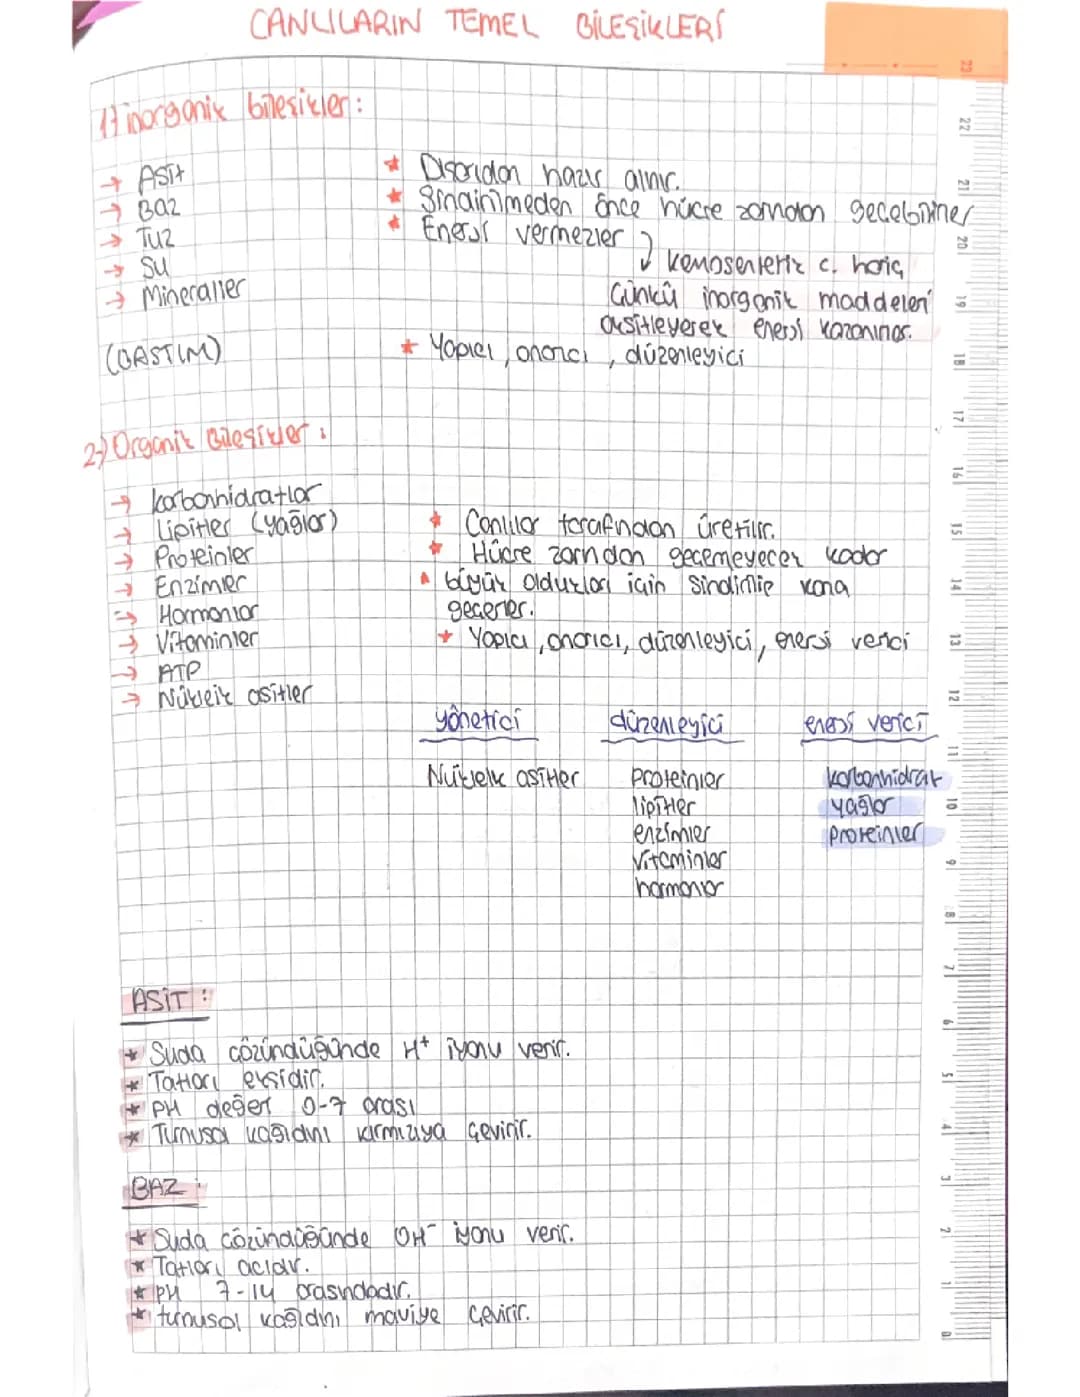 CANLILARIN TEMEL BİLEŞİKLERİ
1) inorganik bileşikler:
→ Asit
→ Baz
→ Tuz
→ Su
→ Mineraller
(BASTIM)
* Dışarıdan hazır alınır.
* Sindirilmeden önce hücre zarından geçebilirler
* Enerji vermezler
↓ kemosentetik c. hariç
Çünkü inorganik maddeleri
oksitleyerek enerji kazanırlar.
* Yapıcı, onarıcı, düzenleyici
2-) Organik Bileşikler:
→ karbonhidratlar
→ Lipitler (yağlar)
→ Proteinler
→ Enzimler
→ Hormonlar
→ Vitaminler
→ ATP
→ Nükleik asitler
* Canlılar tarafından üretilir.
* Hücre zarından geçemeyecek kadar
* büyük oldukları için sindirilip kana
geçerler.
* Yapıcı, onarıcı, düzenleyici, enerji verici
yönetici düzenleyici enerji verici
Nükleik asitler proteinler karbonhidrat
lipitler yağlar
enzimler proteinler
vitaminler
hormonlar
ASİT:
* Suda çözündüğünde H⁺ iyonu verir.
* Tatları ekşidir.
* PH değeri 0-7 arası
* Turnusol kağıdını kırmızıya çevirir.
BAZ:
* Suda çözündüğünde OH⁻ iyonu verir.
* Tatları acıdır.
* PH 7-14 arasındadır.
* turnusol kağıdını maviye çevirir.
23
22
21
20
19
18
17
16
15
14
13
12
11
10
9
8
7
6
5
4
3
2
1
0